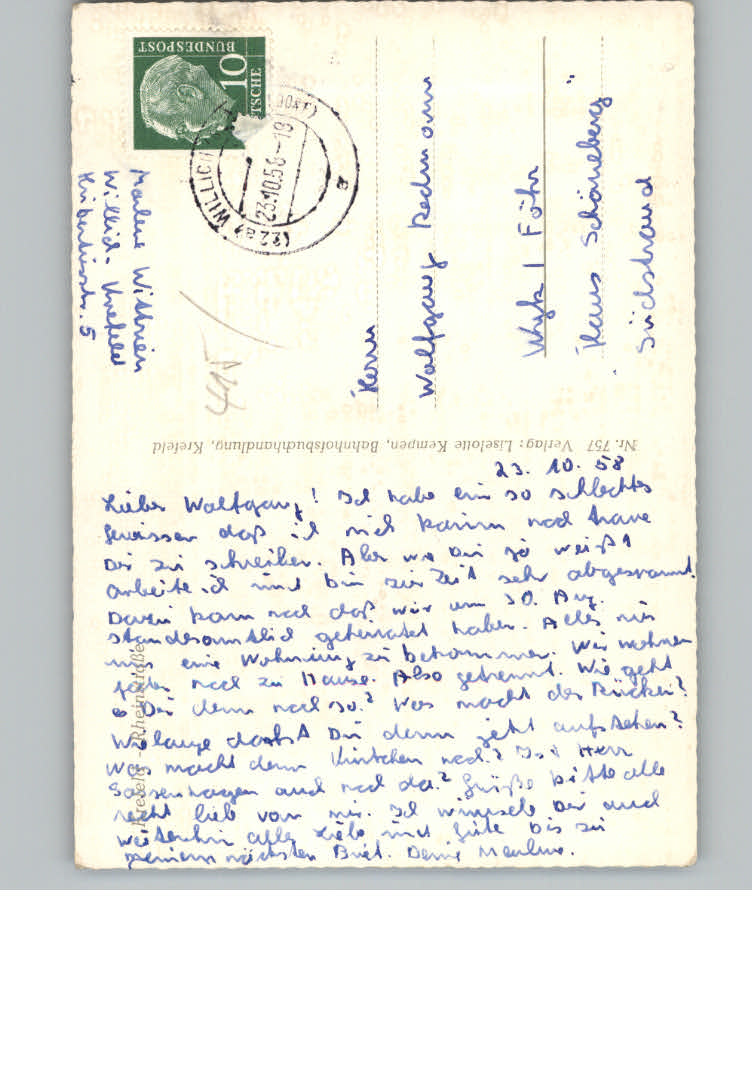 DEUTSCHE
BUNDESPOST
10
(22a) WILLICH
23.10.58-19
a
Marlene
Willich-Krefeld
5
415
Herrn
Wolfgang Redmann
Wyk / Föhr
Haus Schöneberg
Südstrand
Nr. 757 Verlag: Liselotte Kempen, Bahnhofsbuchhandlung, Krefeld
Krefeld - Rheinstraße
23. 10. 58
Lieber Wolfgang! Ich habe ein so schlechtes
Gewissen daß ich mich kaum noch traue
Dir zu schreiben. Aber wie Du ja weißt
arbeite ich und bin zur Zeit sehr abgespannt.
Dazu kam noch daß wir am 30. Aug.
standesamtlich geheiratet haben. Alles nur
um eine Wohnung zu bekommen. Wir wohnen
jeder noch zu Hause. Also getrennt. Wie geht
es Dir denn noch so? Was macht der Rücken?
Wielange darfst Du denn jetzt aufstehen?
Was macht denn Kurtchen noch? Ist Herr
Sassenhagen auch noch da? Grüße bitte alle
recht lieb von mir. Ich wünsche Dir auch
weiterhin alles Liebe und Gute bis zu
meinem nächsten Brief. Deine Marlene.